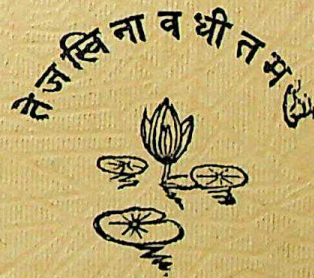 तेजस्विनावधीतमस्तु